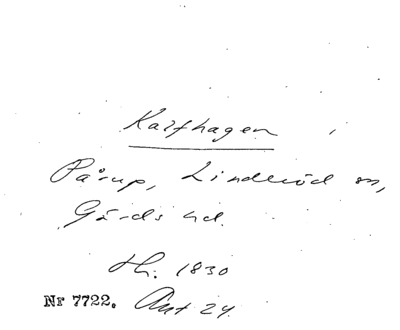 Kalfhagen
Pårup, Linderöd sn,
Gärds hd.
Hr. 1830
Nr 7722. Ant 24.